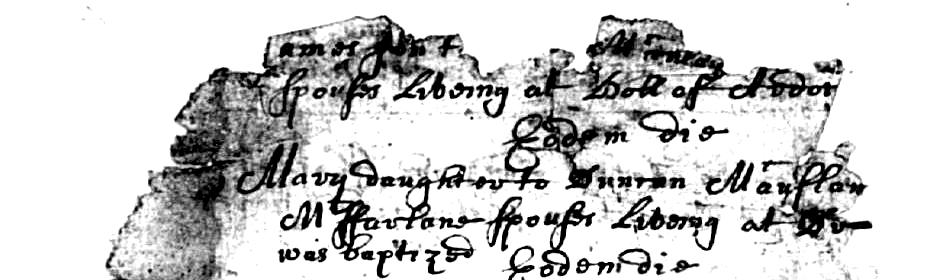 ames
spouses Liveing at Boll of Ardor
Eodem die
Mary daughter to Duncan McAuslan
McFarlane spouses Liveing at
was baptized Eodem die